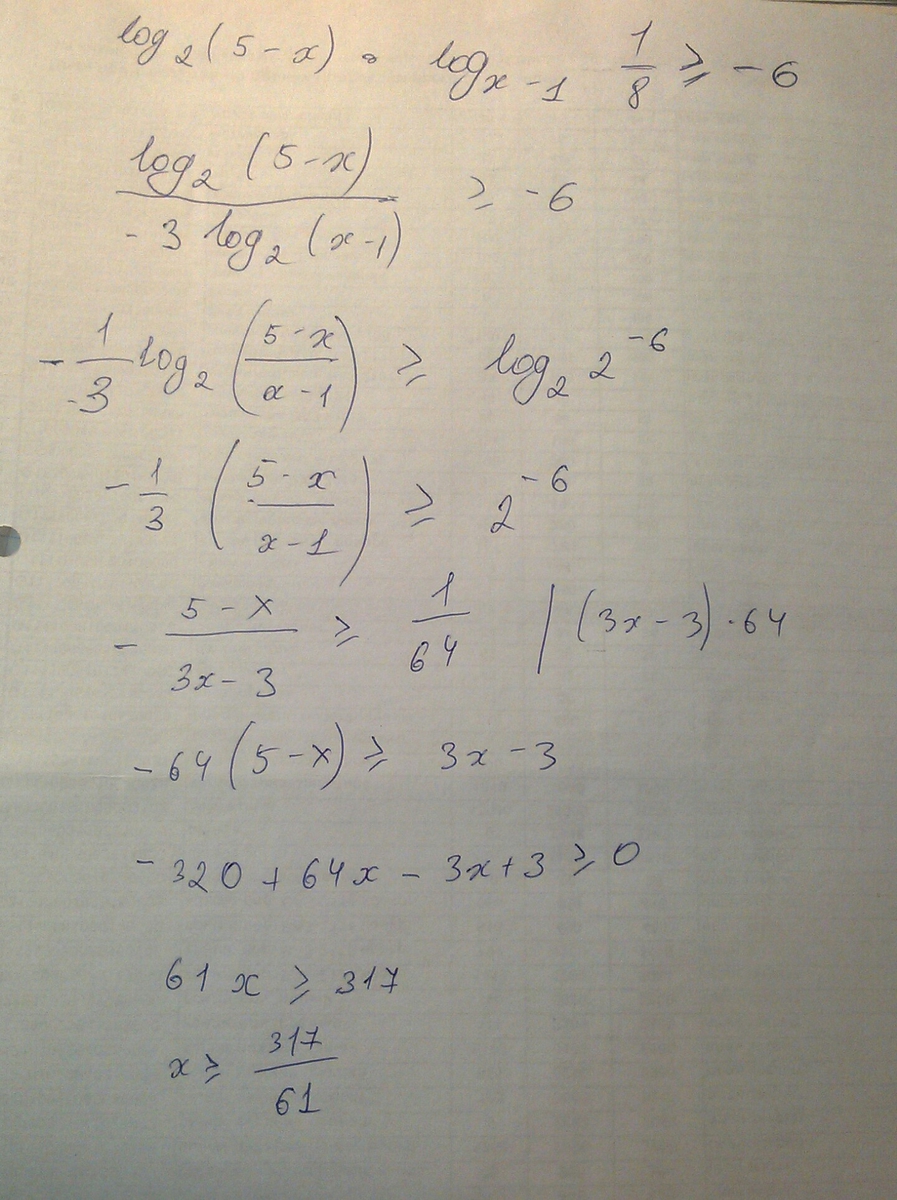 log₂(5-x) · logₓ₋₁ 1/8 ≥ -6
log₂(5-x) / -3 log₂(x-1) ≥ -6
-1/-3 log₂((5-x)/(x-1)) ≥ log₂ 2⁻⁶
-1/3 ((5-x)/(x-1)) ≥ 2⁻⁶
- (5-x)/(3x-3) ≥ 1/64 | (3x-3)·64
-64(5-x) ≥ 3x-3
-320+64x-3x+3 ≥ 0
61x ≥ 317
x ≥ 317/61